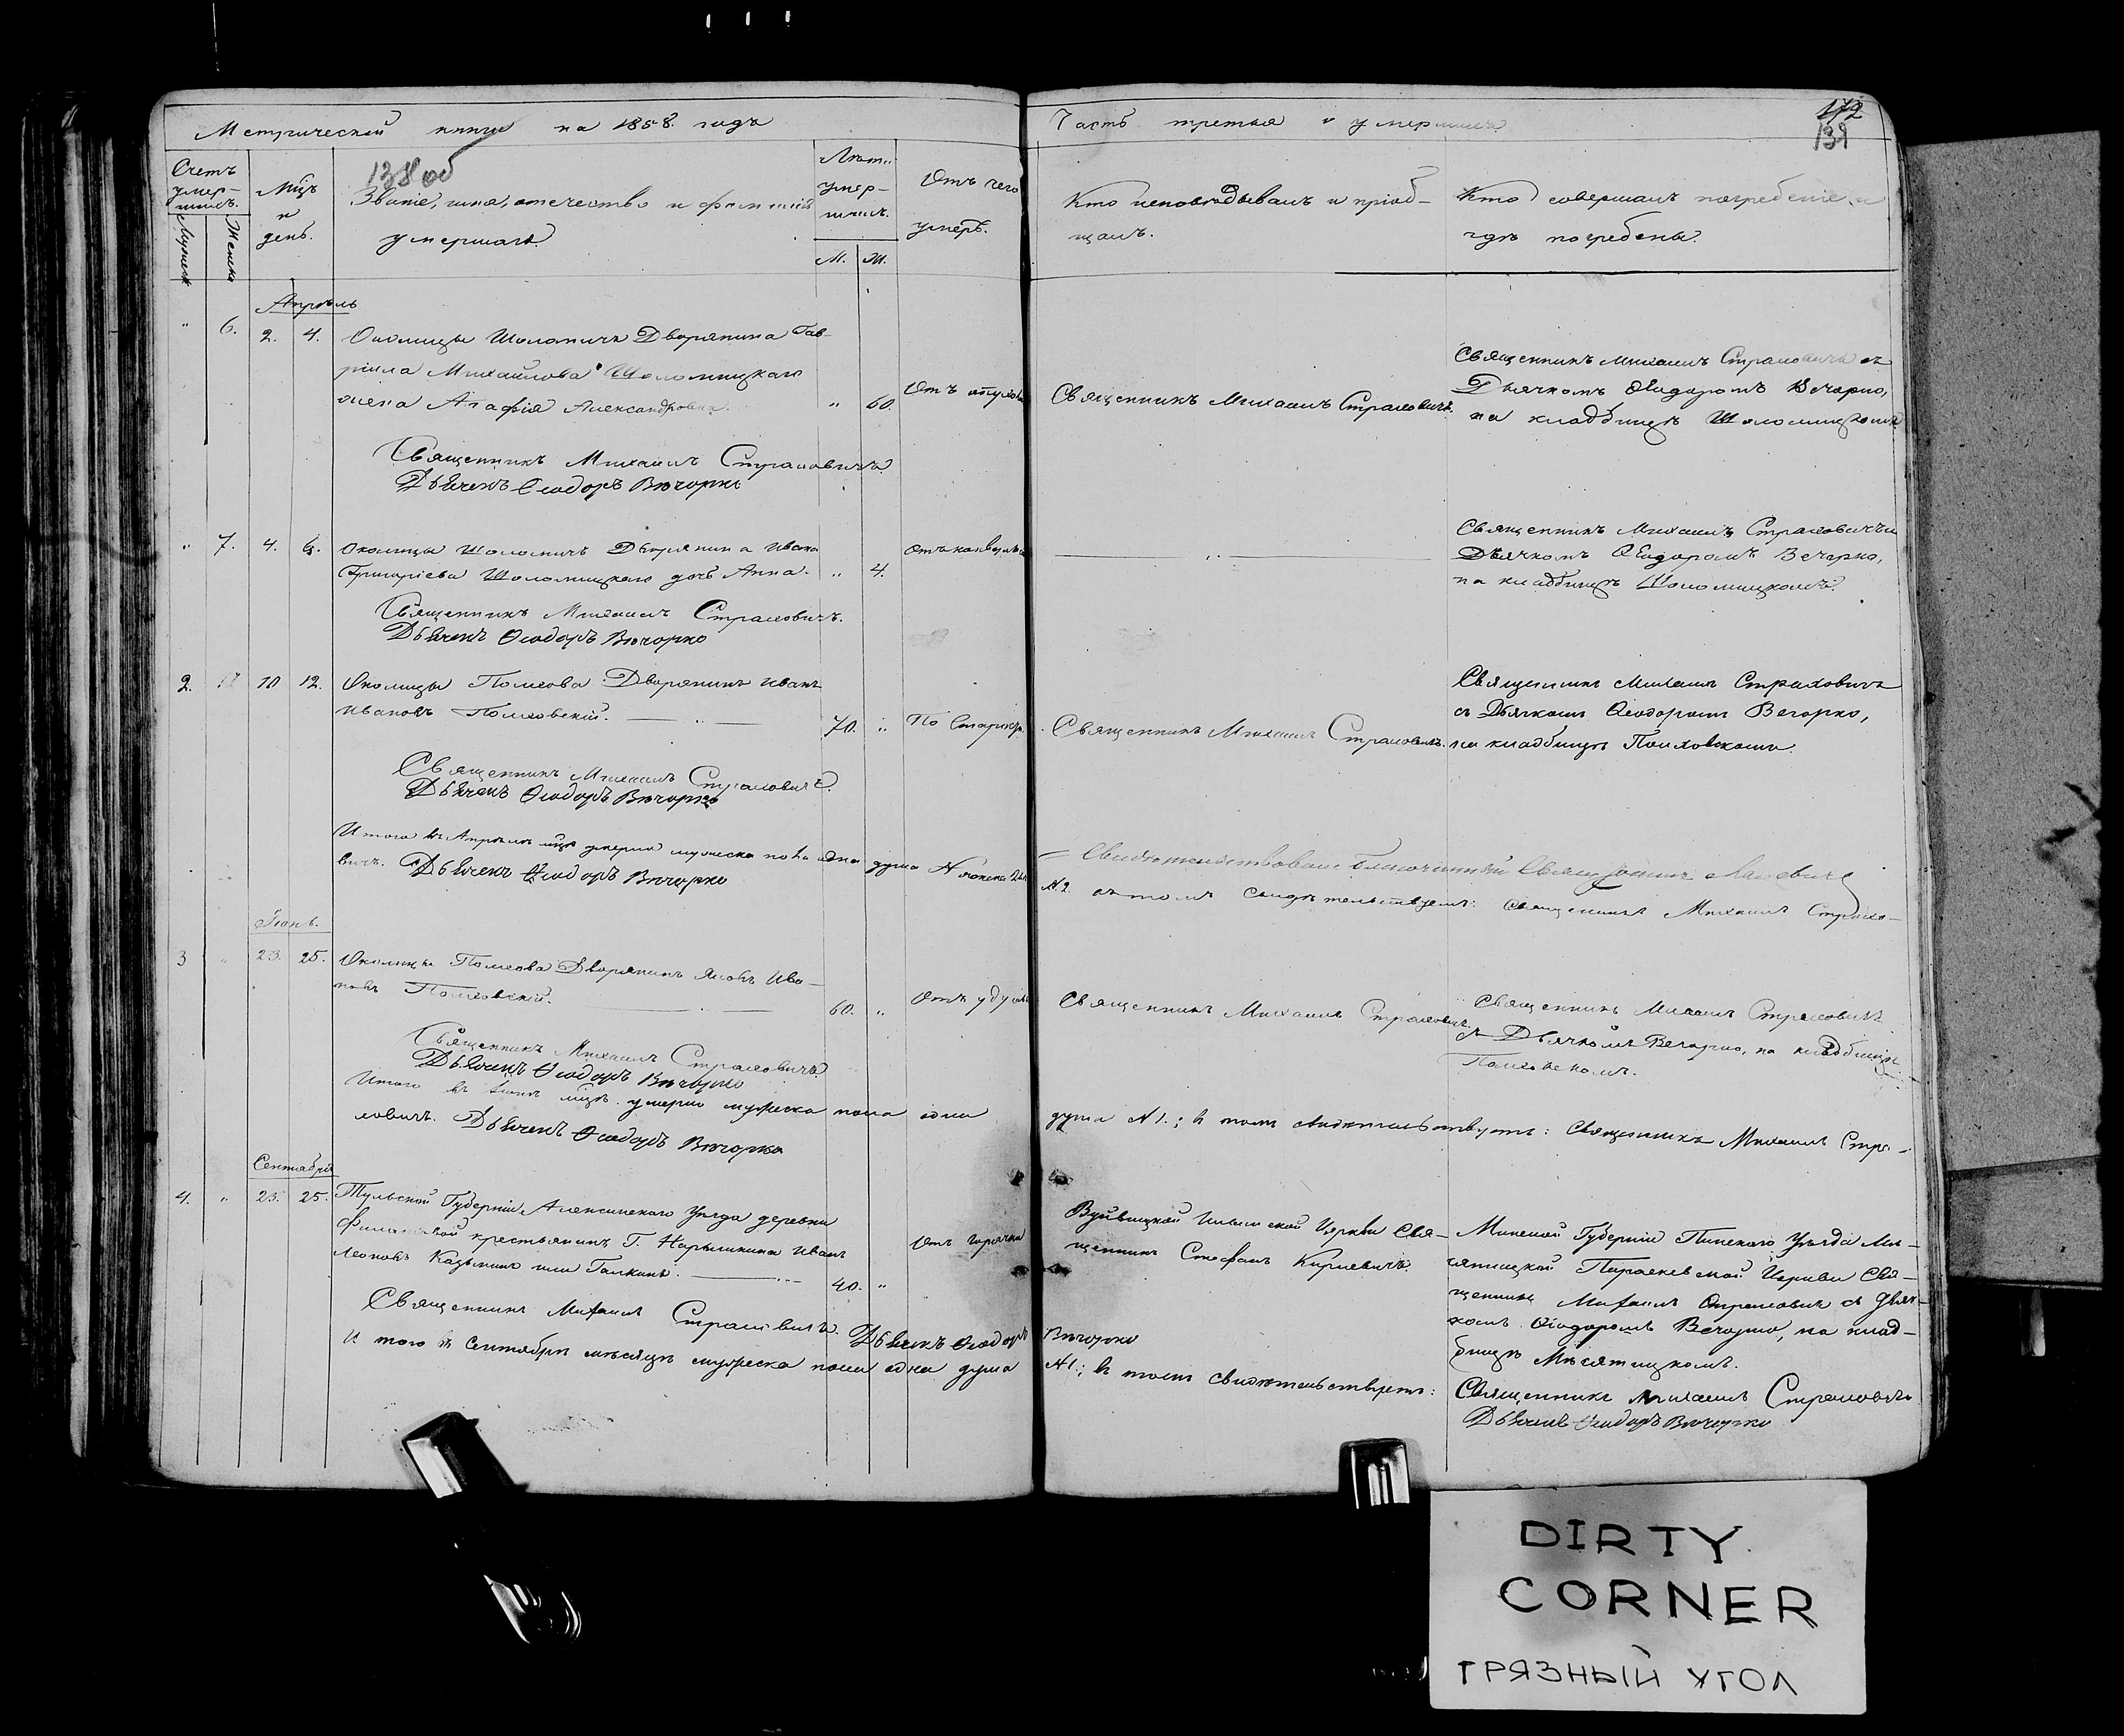 Метрической книги на 1858. годъ
Часть третья о умершихъ
172
139
138 об
Счетъ умер-шихъ.
Мужеск
Женска
Мцъ и день.
Званіе, имя, отечество и фамилія
умершаго.
Лѣта умер-шихъ.
М. Ж.
Отъ чего
умеръ.
Кто исповѣдывалъ и пріоб-
щалъ.
Кто совершалъ погребеніе и
гдѣ погребены.
Апрѣль
" 6. 2. 4. Околицы Шоломичъ Дворянина Гав-
ріила Михайлова Шоломицкаго
жена Агафія Александровна. " 60.
Отъ
Священникъ Михаилъ Страховичъ.
Священникъ Михаилъ Страховичъ съ
Дьячкомъ Ѳеодоромъ Вечорко,
на кладбищѣ Шоломицкомъ
Священникъ Михаилъ Страховичъ
Дьячекъ Ѳеодоръ Вечорко
" 7. 4. 6. Околицы Шоломичъ Дворянина Ивана
Григоріева Шоломицкаго дочь Анна. " 4.
Отъ
Священникъ Михаилъ Страховичъ
Дьячкомъ Ѳеодоромъ Вечорко,
на кладбищѣ Шоломицкомъ.
Священникъ Михаилъ Страховичъ.
Дьячекъ Ѳеодоръ Вечорко
2. 10 12. Околицы Полхова Дворянинъ Иванъ
Ивановъ Полховскій. 70. "
По Старости
Священникъ Михаилъ Страховичъ.
Священникъ Михаилъ Страховичъ
съ Дьячкомъ Ѳеодоромъ Вечорко,
на кладбищѣ Полховскомъ.
Священникъ Михаилъ Страховичъ.
Дьячекъ Ѳеодоръ Вечорко
Итого въ Апрѣлѣ мцѣ умерло мужеска пола одна душа
N 2. въ томъ свидѣтельствуемъ: Священникъ Михаилъ Страхо-
вичъ. Дьячекъ Ѳеодоръ Вечорко
Свидѣтельствовалъ Благочинный Священникъ
Іюнь.
3 " 23. 25. Околицы Полхова Дворянинъ Яковъ Ива-
новъ Полховскій. 60. "
Отъ удушья
Священникъ Михаилъ Страховичъ.
Священникъ Михаилъ Страховичъ
съ Дьячкомъ Вечорко, на кладбищѣ
Полховскомъ.
Священникъ Михаилъ Страховичъ.
Дьячекъ Ѳеодоръ Вечорко
Итого въ Іюнѣ мцѣ умерло мужеска пола одна душа N 1.; въ томъ свидѣтельствуемъ: Священникъ Михаилъ Стра-
ховичъ. Дьячекъ Ѳеодоръ Вечорко
Сентябрь
4. " 23. 25. Тульской Губерніи Алексинскаго Уѣзда деревни
крестьянинъ Г. Нарышкина Иванъ
Леоновъ или Галкинъ. 40. "
Отъ горячки
Церкви Свя-
щенникъ Стефанъ Кирневичъ.
Минской Губерніи Пинскаго Уѣзда Мѣ-
сятицкой Параскевской Церкви Свя-
щенникъ Михаилъ Страховичъ съ Дьяч-
комъ Ѳеодоромъ Вечорко, на клад-
бищѣ Мѣсятицкомъ.
Священникъ Михаилъ Страховичъ. Дьячекъ Ѳеодоръ Вечорко
Итого въ Сентябрѣ мѣсяцѣ мужеска пола одна душа N 1.; въ томъ свидѣтельствуемъ: Священникъ Михаилъ Страховичъ
Дьячекъ Ѳеодоръ Вечорко
DIRTY
CORNER
ГРЯЗНЫЙ УГОЛ